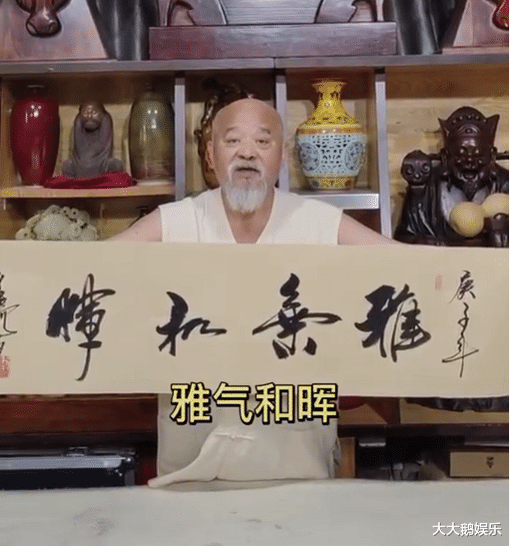 庚子年
雅氣和暉
雅气和晖
大大鹅娱乐